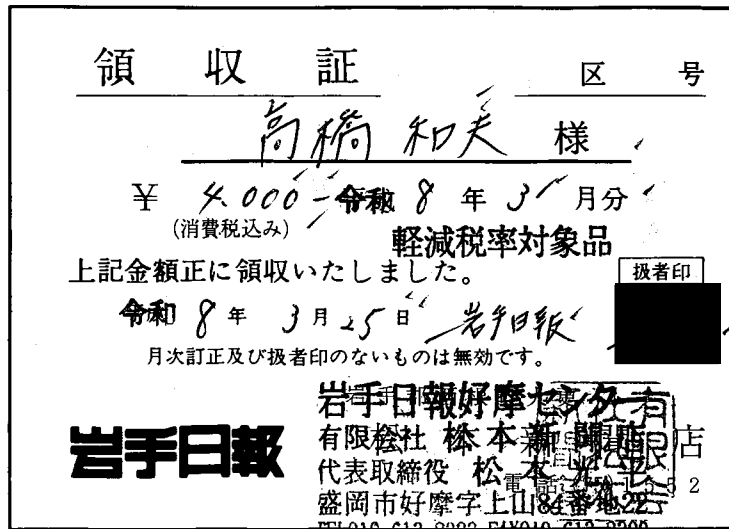 領収証 区 号
高橋 和夫 様
¥ 4.000- 令和 8 年 3 月分
(消費税込み)
軽減税率対象品
上記金額正に領収いたしました。
扱者印
令和 8 年 3 月 25 日 岩手日報
月次訂正及び扱者印のないものは無効です。
岩手日報好摩センター
岩手日報
有限会社 松本新聞店
代表取締役 松本
盛岡市好摩字上山84番地22